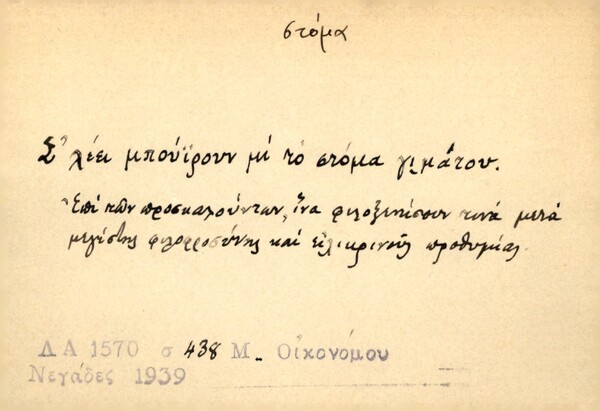 στόμα
Σ' λέει μπούϊρουν μὶ τὸ στόμα γιμάτου.
Ἐπὶ τῶν προσκαλούντων, ἵνα φιλοξενήσουν τινά μετά
μεγίστης φιλοφροσύνης καὶ εἰλικρινοῦς προθυμίας.
Λ Α 1570 σ 438 Μ. Οἰκονόμου
Νεγάδες 1939